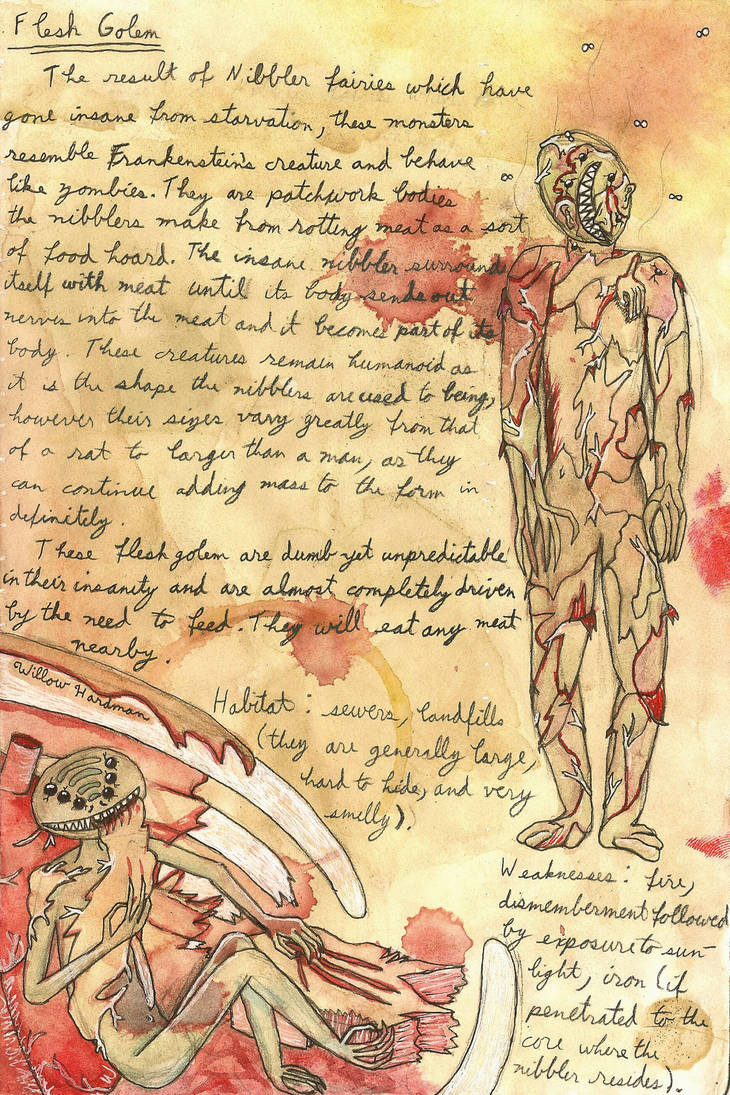 Flesh Golem
The result of Nibbler fairies which have
gone insane from starvation, these monsters
resemble Frankenstein's creature and behave
like zombies. They are patchwork bodies
the nibblers make from rotting meat as a sort
of food hoard. The insane nibbler surrounds
itself with meat until its body sends out
nerves into the meat and it becomes part of its
body. These creatures remain humanoid as
it is the shape the nibblers are used to being,
however their sizes vary greatly from that
of a rat to larger than a man, as they
can continue adding mass to the form in
definitely.
These flesh golem are dumb yet unpredictable
in their insanity and are almost completely driven
by the need to feed. They will eat any meat
nearby.
Willow Hardman
Habitat: sewers, landfills
(they are generally large,
hard to hide, and very
smelly).
Weaknesses: fire,
dismemberment followed
by exposure to sun-
light, iron (if
penetrated to the
core where the
nibbler resides).